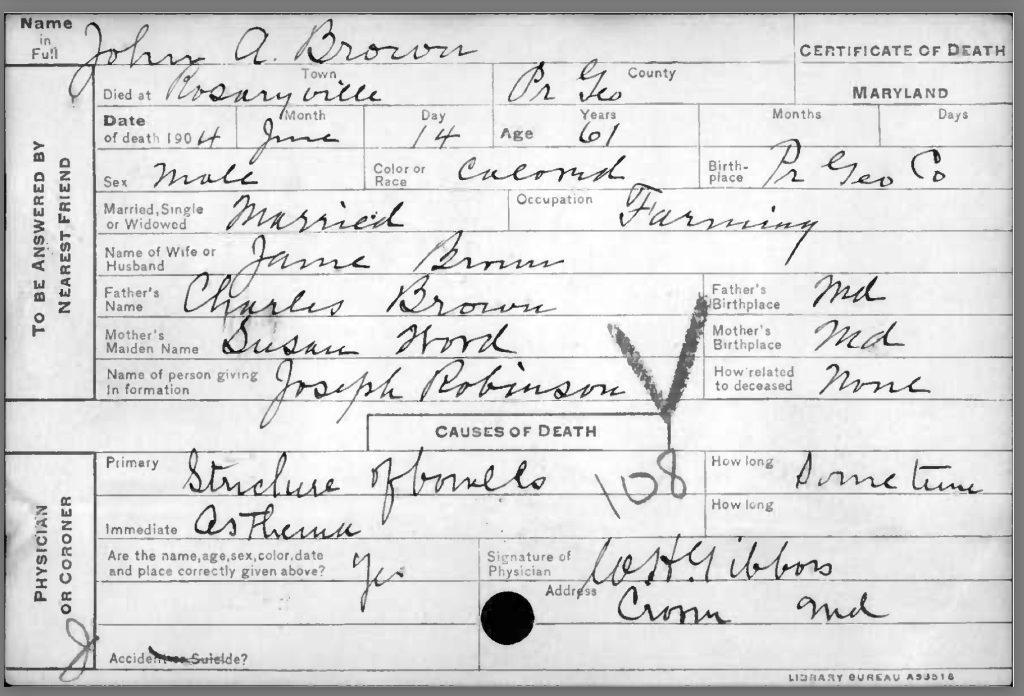 Name in Full John A. Brown
CERTIFICATE OF DEATH
Died at Rosaryville Town Pr Geo County MARYLAND
Date of death 1904 Month June Day 14 Age Years 61 Months Days
Sex Male Color or Race Colored Birth-place Pr Geo Co
Married, Single or Widowed Married Occupation Farming
Name of Wife or Husband Jane Brown
Father's Name Charles Brown Father's Birthplace Md
Mother's Maiden Name Susan Wood Mother's Birthplace Md
Name of person giving In formation Joseph Robinson How related to deceased None
TO BE ANSWERED BY NEAREST FRIEND
CAUSES OF DEATH
Primary Stricture of bowells 108 How long Some time
Immediate Asthema How long
Are the name, age, sex, color, date and place correctly given above? yes Signature of Physician W H Gibbons
Address Croom Md
Accident or Suicide?
PHYSICIAN OR CORONER
LIBRARY BUREAU A93516